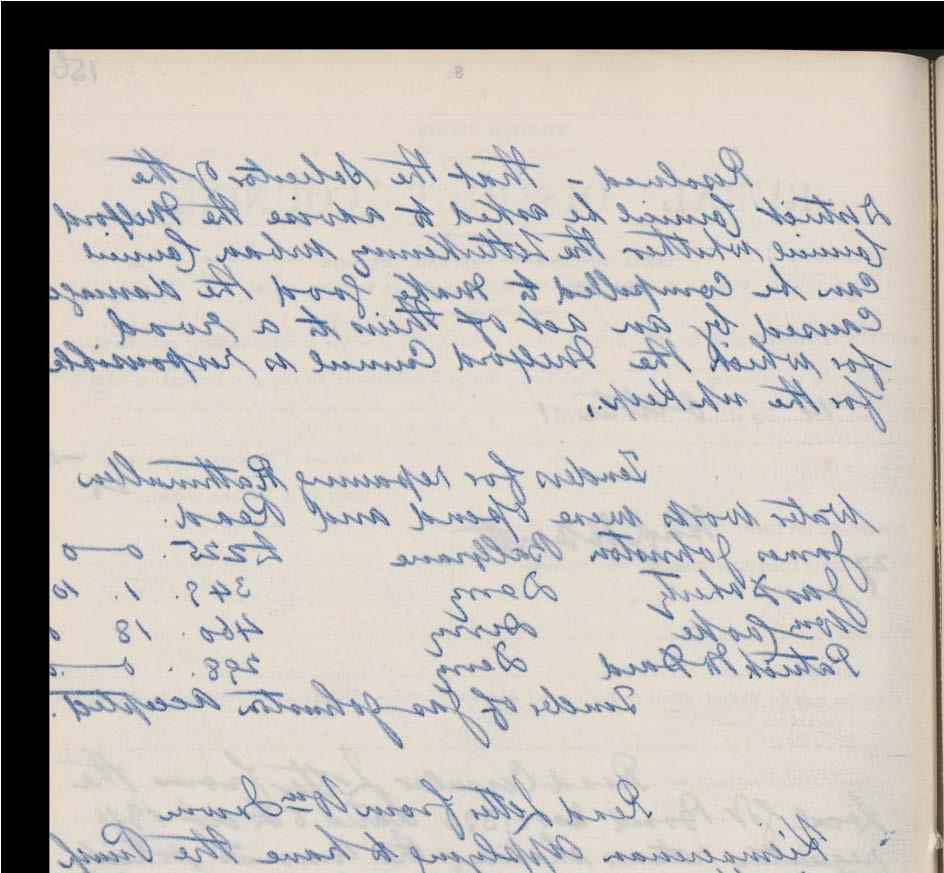 156
8
Resolved - that the Solicitor of the
District Council be asked to advise the Milford
Council whether the Letterkenny Urban Council
can be compelled to make good the damage
caused by an act of theirs to a road
for which the Milford Council is responsible
for the upkeep.
Tenders for repairing Rathmullan
Water Works were opened and Read.
James Johnston Ballinrane £225. 0 — 0
Jas Doherty Derry 343. 1. 10
Wm Cooke Derry 460. 18 0
Patrick McDaid Derry 298. 0 — 0
Tender of Jas Johnston accepted.
Read Letter from Wm Irwin
Kilmacrenan applying to have the Pump